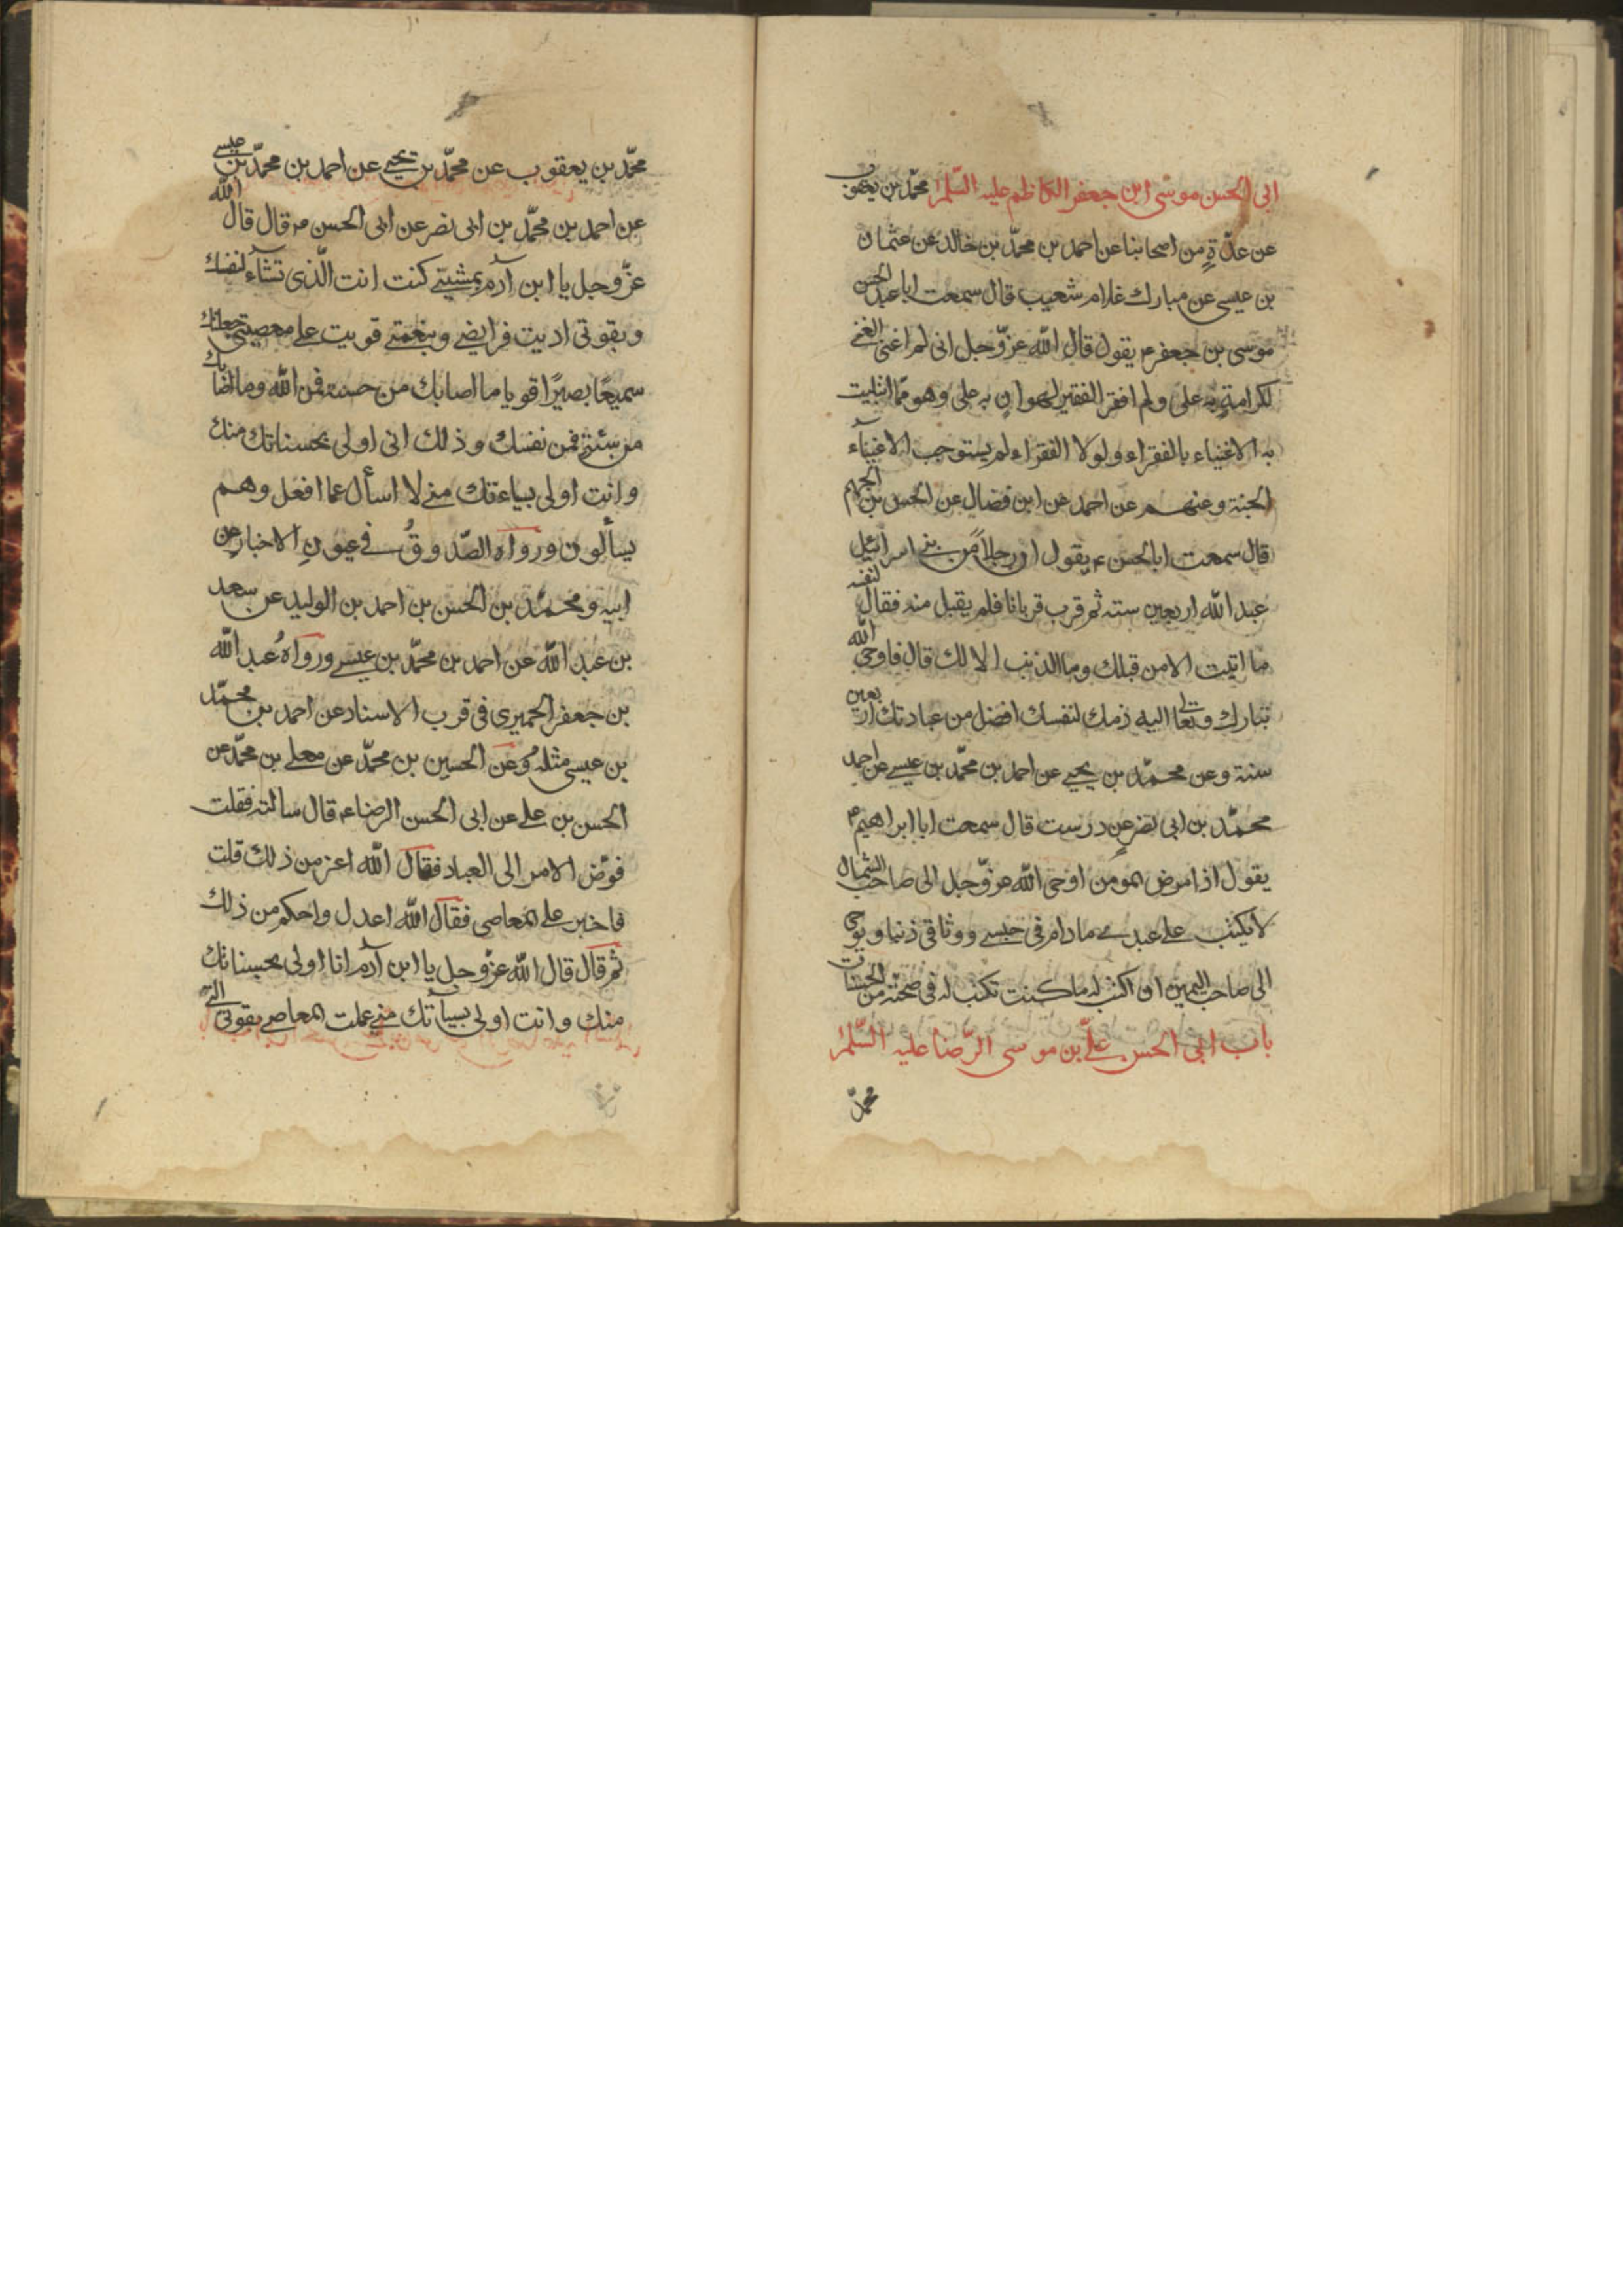 ابی الحسن موسی ابن جعفر الکاظم علیه السّلم محمّد بن یعقوب
عن عدّةٍ من اصحابنا عن احمد بن محمّد بن خالد عن عثمان
بن عیسی عن مبارك غلام شعیب قال سمعت ابا عبد الحسن
موسی بن جعفر م یقول قال الله عزّ وجل انی لم اغنی الغنی
لکرامةٍ به علی ولم افقر الفقیر لهوان به علی وهو ممّا ابتلیت
به الاغنیاء بالفقراء ولولا الفقراء لم یستوجب الاغنیآء
الجنة وعنهم عن احمد عن ابن فضال عن الحسن بن الجهم
قال سمعت ابا الحسن ع یقول ان رجلاً من بنی اسرائیل
عبد الله اربعین سنته ثم قرب قربانا فلم یقبل منه فقال لنفسه
ما اتیت الا من قبلك وما الذنب الا لك قال فاوحی الله
تبارك وتعالی الیه ذمك لنفسك افضل من عبادتك اربعین
سنة وعن محمّد بن یحیی عن احمد بن محمّد بن عیسی عن احمد
محمّد بن ابی نضر عن درست قال سمعت ابا ابراهیم ع
یقول اذا مرض المومن اوحی الله عزّ وجل الی صاحب الشمال
لا تکتب علی عبدی ما دام فی حبسی ووثاقی ذنبا ویوحی
الی صاحب الیمین ان اکتب له ما کنت تکتب له فی صحته من الحسنات
باب ابی الحسن علیّ بن موسی الرّضا علیه السّلم
محمّد
محمّد بن یعقوب عن محمّد بن یحیی عن احمد بن محمّد بن عیسی
عن احمد بن محمّد بن ابی نضر عن ابی الحسن م قال قال الله
عزّ وجل یا ابن آدم بمشیتی کنت انت الّذی تشآء لنفسك
وبقوتی ادیت فرایضی وبنعمتی قویت علی معصیتی جعلتك
سمیعًا بصیرًا قویا ما اصابك من حسنة فمن الله وما اصابك
من سئة فمن نفسك وذلك انی اولی بحسناتك منك
وانت اولی بسیاءتك منی لا اسأل عما افعل وهم
یسألون ورواه الصّدوقُ فی عیون الاخبار عن
ابیه ومحمّد بن الحسن بن احمد بن الولید عن سعد
بن عبد الله عن احمد بن محمّد بن عیسی ورواهُ عبد الله
بن جعفر الحمیری فی قرب الاسناد عن احمد بن محمّد
بن عیسی مثله وعن الحسین بن محمّد عن معلی بن محمّد عن
الحسن بن علی عن ابی الحسن الرضا ع قال سالته فقلت
فوّض الامر الی العباد فقال الله اعز من ذلك قلت
فاجبر علی المعاصی فقال الله اعدل واحکم من ذلك
ثم قال قال الله عزّ وجل یا ابن آدم انا اولی بحسناتك
منك وانت اولی بسیآتك منی عملت المعاصی بقوتی التی